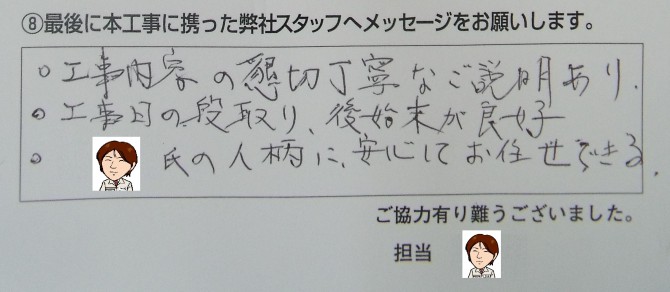 ⑧最後に本工事に携った弊社スタッフへメッセージをお願いします。
○工事内容の懇切丁寧なご説明あり.
○工事日の段取り、後始末が良好
○ 氏の人柄に、安心してお任せできる.
ご協力有り難うございました。
担当